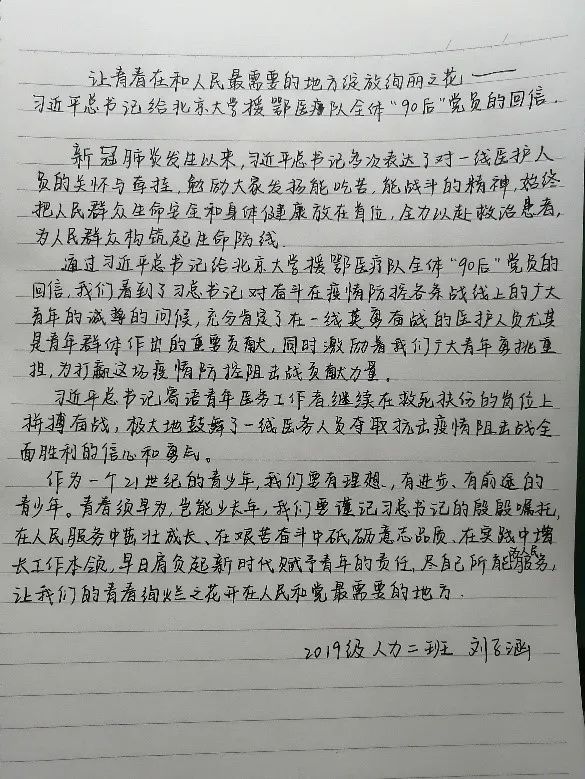 让青春在和人民最需要的地方绽放绚丽之花——
习近平总书记给北京大学援鄂医疗队全体“90后”党员的回信.
新冠肺炎发生以来,习近平总书记多次表达了对一线医护人
员的关怀与牵挂,勉励大家发扬能吃苦,能战斗的精神,始终
把人民群众生命安全和身体健康放在首位,全力以赴救治患者,
为人民群众构筑起生命防线.
通过习近平总书记给北京大学援鄂医疗队全体“90后”党员的
回信,我们看到了习总书记对奋斗在疫情防控各条战线上的广大
青年的诚挚的问候,充分肯定了在一线英勇奋战的医护人员尤其
是青年群体作出的重要贡献,同时激励着我们广大青年勇挑重
担,为打赢这场疫情防控阻击战贡献力量。
习近平总书记寄语青年医务工作者继续在救死扶伤的岗位上
拼搏奋战,极大地鼓舞了一线医务人员夺取抗击疫情阻击战全
面胜利的信心和勇气。
作为一个21世纪的青少年,我们要有理想、有进步、有前途的
青少年。青春须早为,岂能少长年,我们要谨记习总书记的殷殷嘱托,
在人民服务中茁壮成长、在艰苦奋斗中砥砺意志品质、在实践中增
长工作本领,早日肩负起新时代赋予青年的责任,尽自己所能为人民服务,
让我们的青春绚烂之花开在人民和党最需要的地方.
2019级人力二班 刘子涵